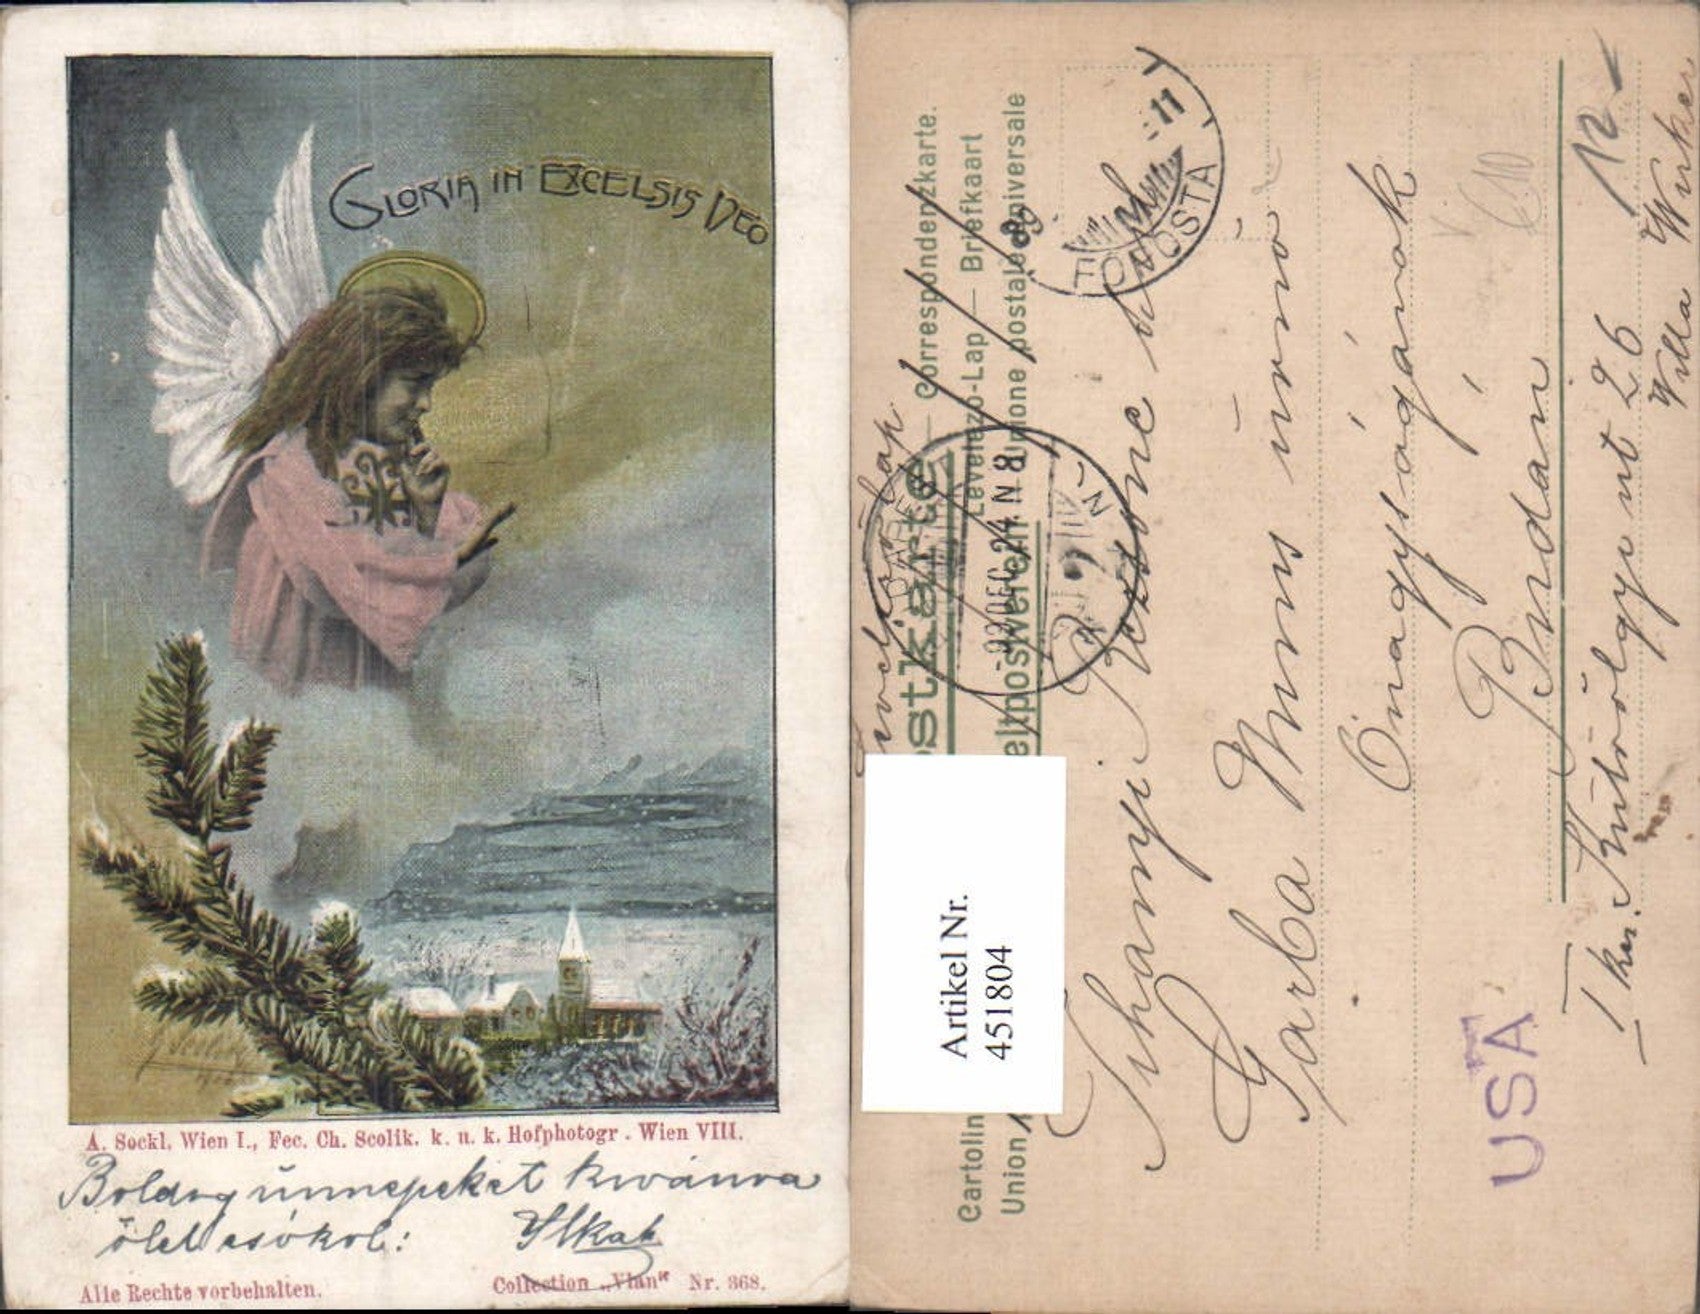 GLORIA IN EXCELSIS DEO
A. Sockl. Wien I., Fec. Ch. Scolik. k. u. k. Hofphotogr. Wien VIII.
Boldog ünnepeket kivánva
ölel csókol: Ilkah
Alle Rechte vorbehalten.
Collection „Vlan“ Nr. 368.
ostkarte — Correspondenzkarte.
Levelező-Lap — Briefkaart
eltpostverein Unione postale universale
Cartolin
Union
902 DEC 24 N 8
POSTA
11
Artikel Nr.
451804
Tihanyi
Tarba Mumi úrnő
Őnagyságának
Budán
I ker. Kútvölgyi út 26
Villa
USA